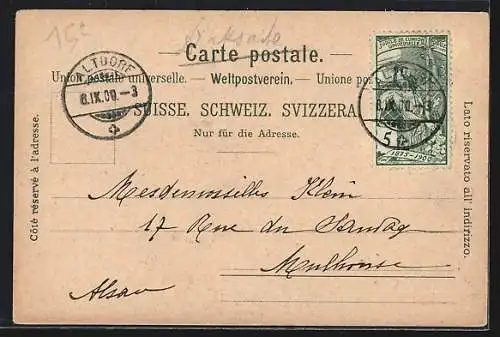 15c
Carte postale.
Union postale universelle. — Weltpostverein. — Unione p
SUISSE. SCHWEIZ. SVIZZERA.
Nur für die Adresse.
Côté réservé à l'adresse.
Lato riservato all' indirizzo.
ALTDORF
8.IX.00.–3
JUBILÉ DE L'UNION
POSTALE UNIVERSELLE
5
1875–1900
ALTDORF
8.IX.00.–3
Mesdemoiselles Klein
17 Rue du Sundag
Mulhouse
Alsace